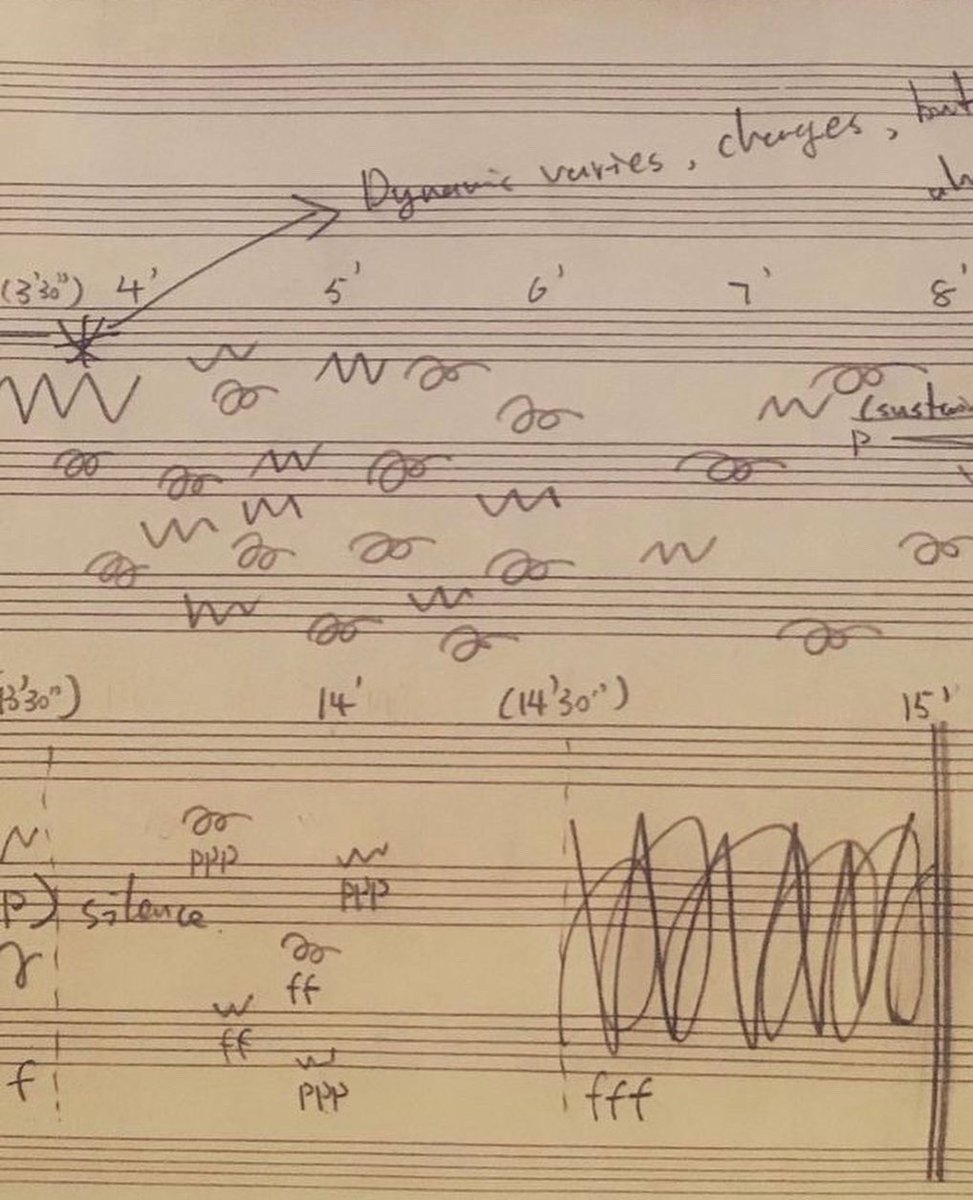 Dynamic varies, changes, but
(3'30") 4' 5' 6' 7' 8'
(sustain
p
13'30") 14' (14'30") 15'
ppp
ppp
p) silence
ff
ff
f ppp fff